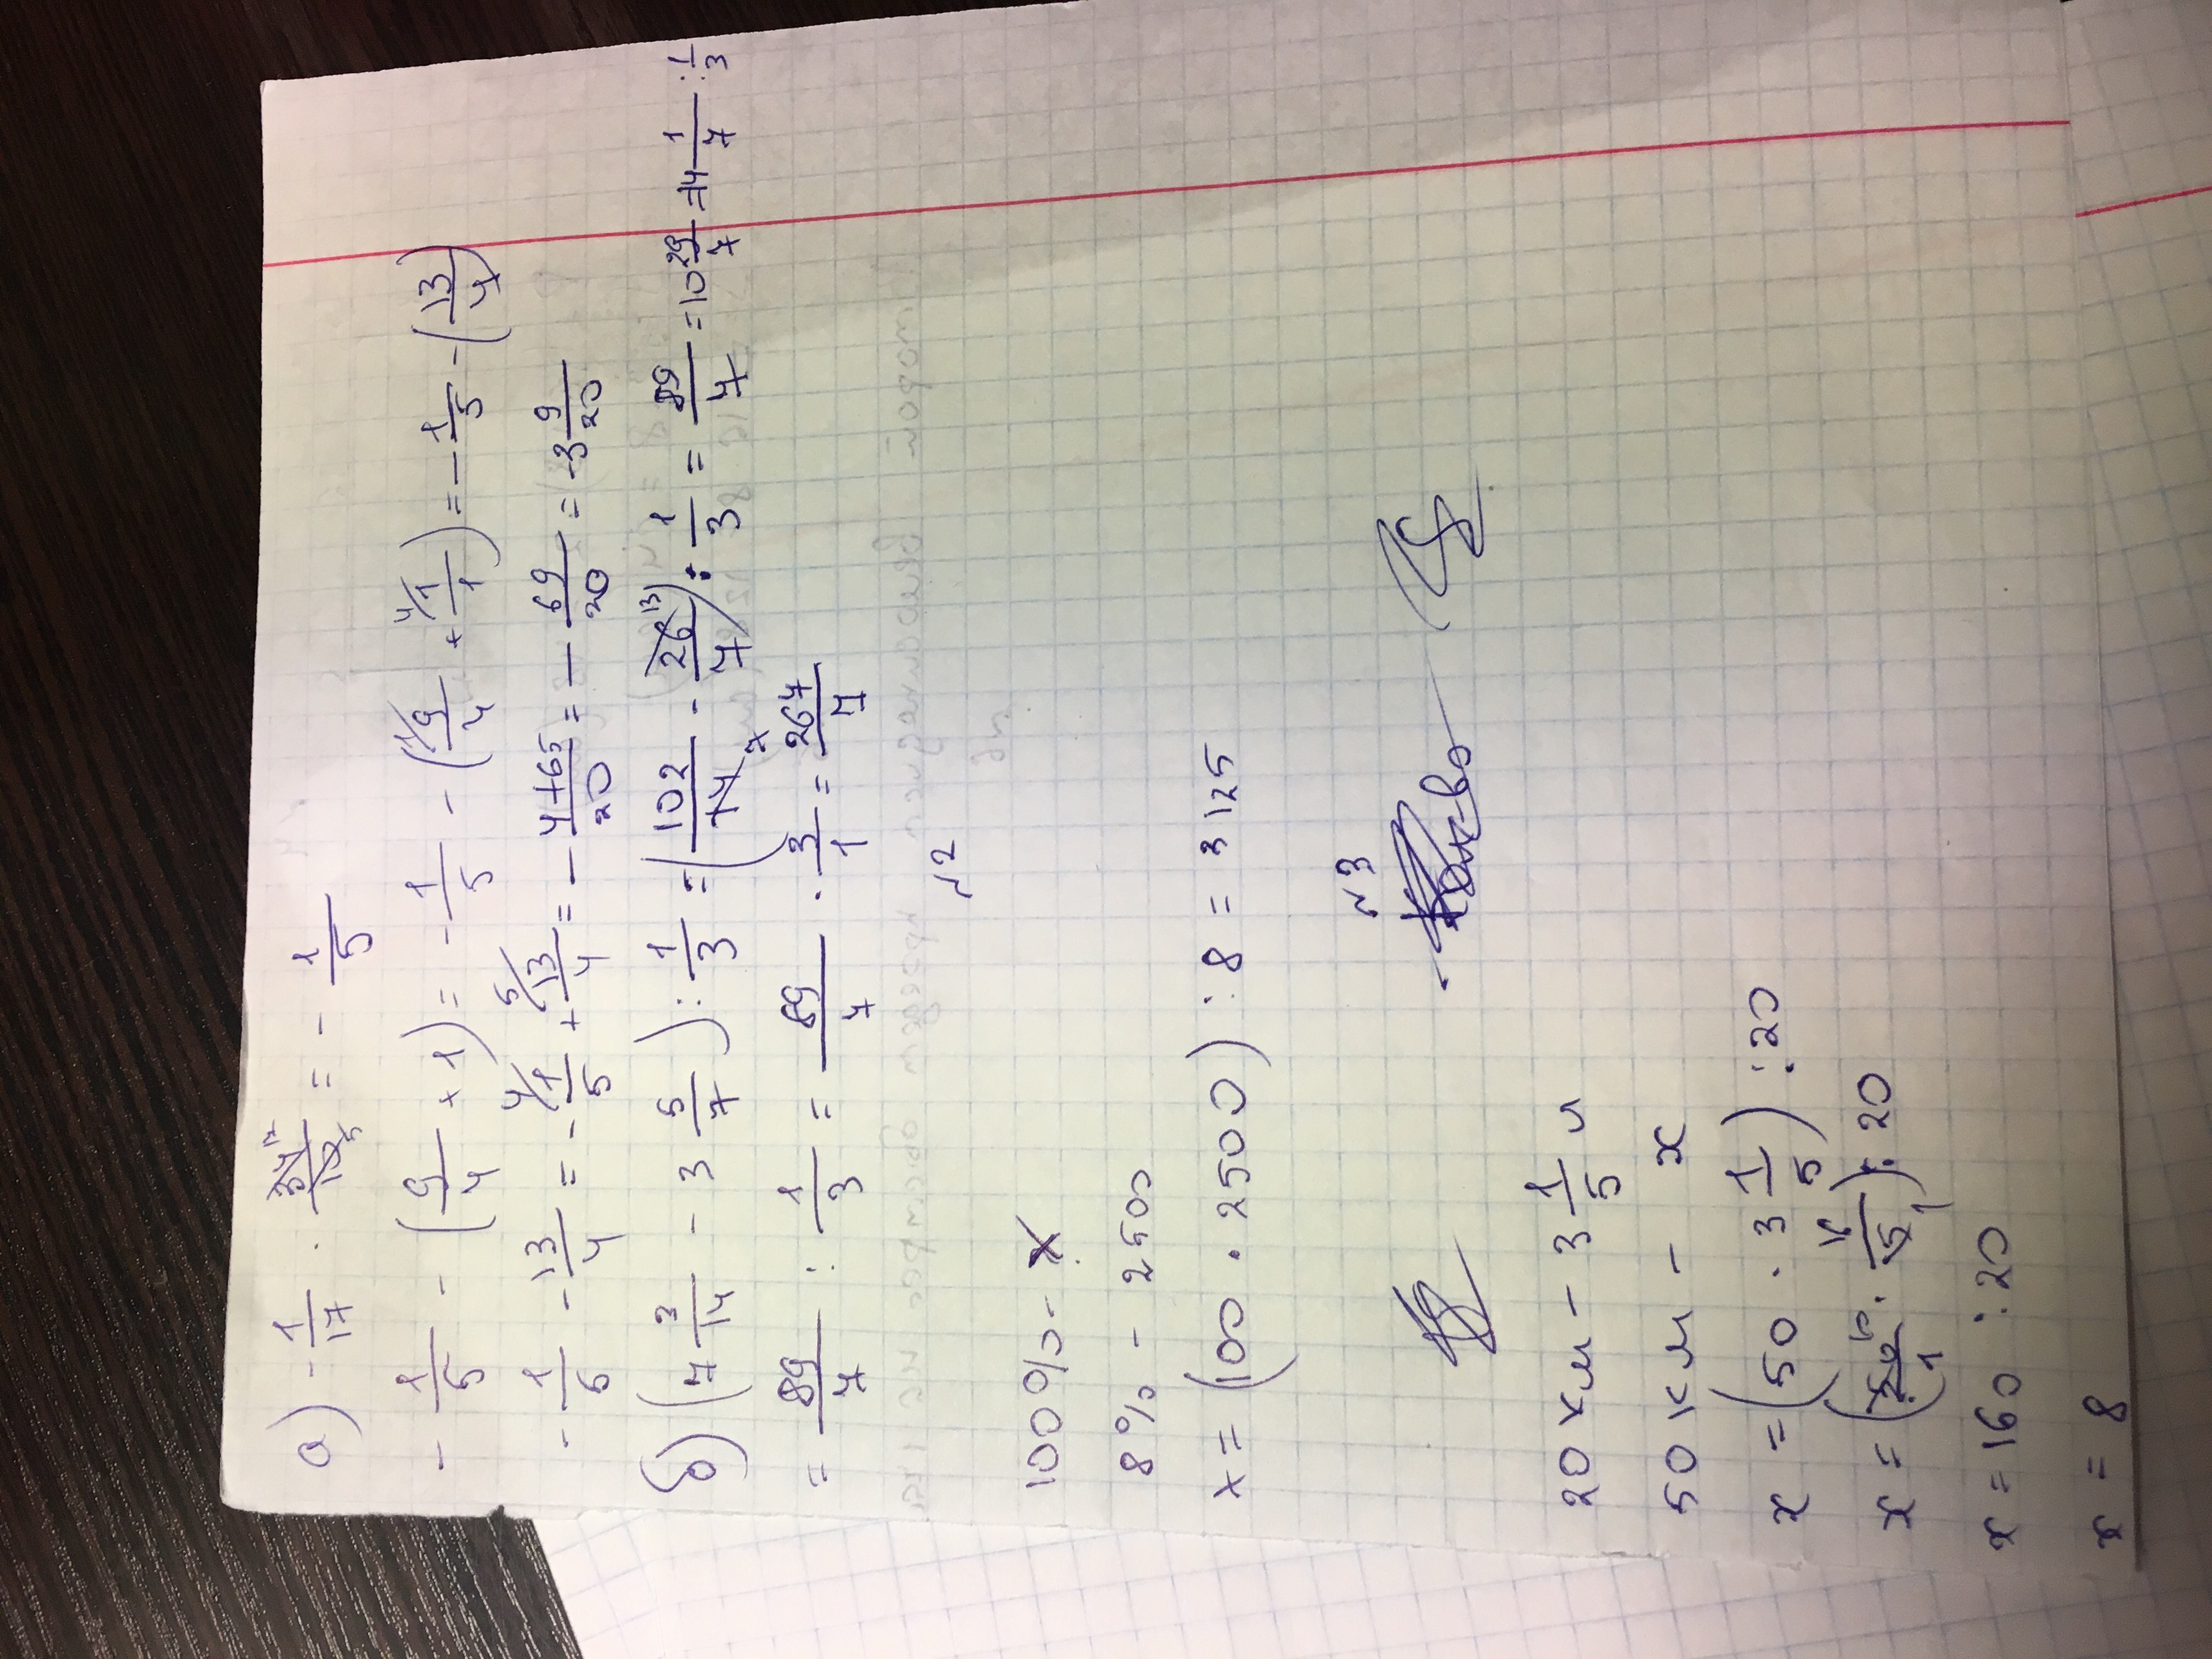 а) - 1/17 · 34/10 = - 1/5
- 1/5 - (9/4 + 1) = - 1/5 - (9/4 + 1/1) = - 1/5 - (13/4)
- 1/5 - 13/4 = - 1/5 + 13/4 = - 4+65/20 = - 69/20 = -3 9/20
б) (7 3/14 - 3 5/7) : 1/3 = (102/14 - 26/7) : 1/3 = 89/7 = 10 29/7 = 14 1/7 : 1/3
= 89/7 : 1/3 = 89/7 · 3/1 = 267/7
№2
100% - x
8% - 2500
x = (100 · 2500) : 8 = 3125
№3
20 км - 3 1/5 л
50 км - x
x = (50 · 3 1/5) : 20
x = (50/1 · 16/5) : 20
x = 160 : 20
x = 8